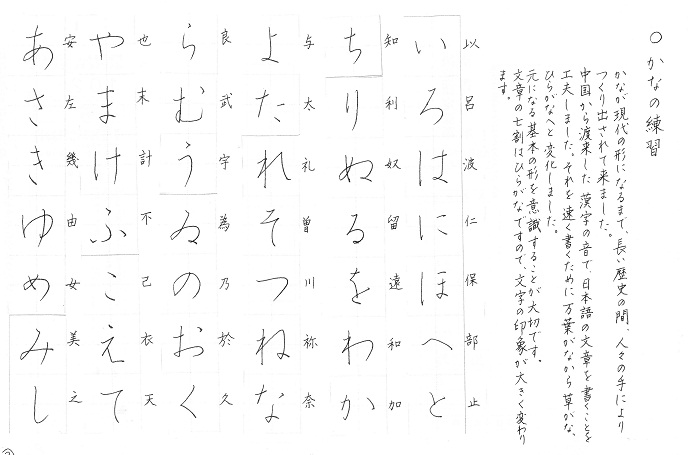 〇かなの練習
かなが現代の形になるまで、長い歴史の間、人々の手により
つくり出されて来ました。
中国から渡来した漢字の音で、日本語の文章を書くことを
工夫しました。それを速く書くために万葉がなから草がな、
ひらがなへと変化しました。
元になる基本の形を意識することが大切です。
文章の七割はひらがなですので、文字の印象が大きく変わり
ます。
以呂波仁保部止
いろはにほへと
知利奴留遠和加
ちりぬるをわか
与太礼曽川祢奈
よたれそつねな
良武宇為乃於久
らむうゐのおく
也末計不己衣天
やまけふこえて
安左幾由女美之
あさきゆめみし